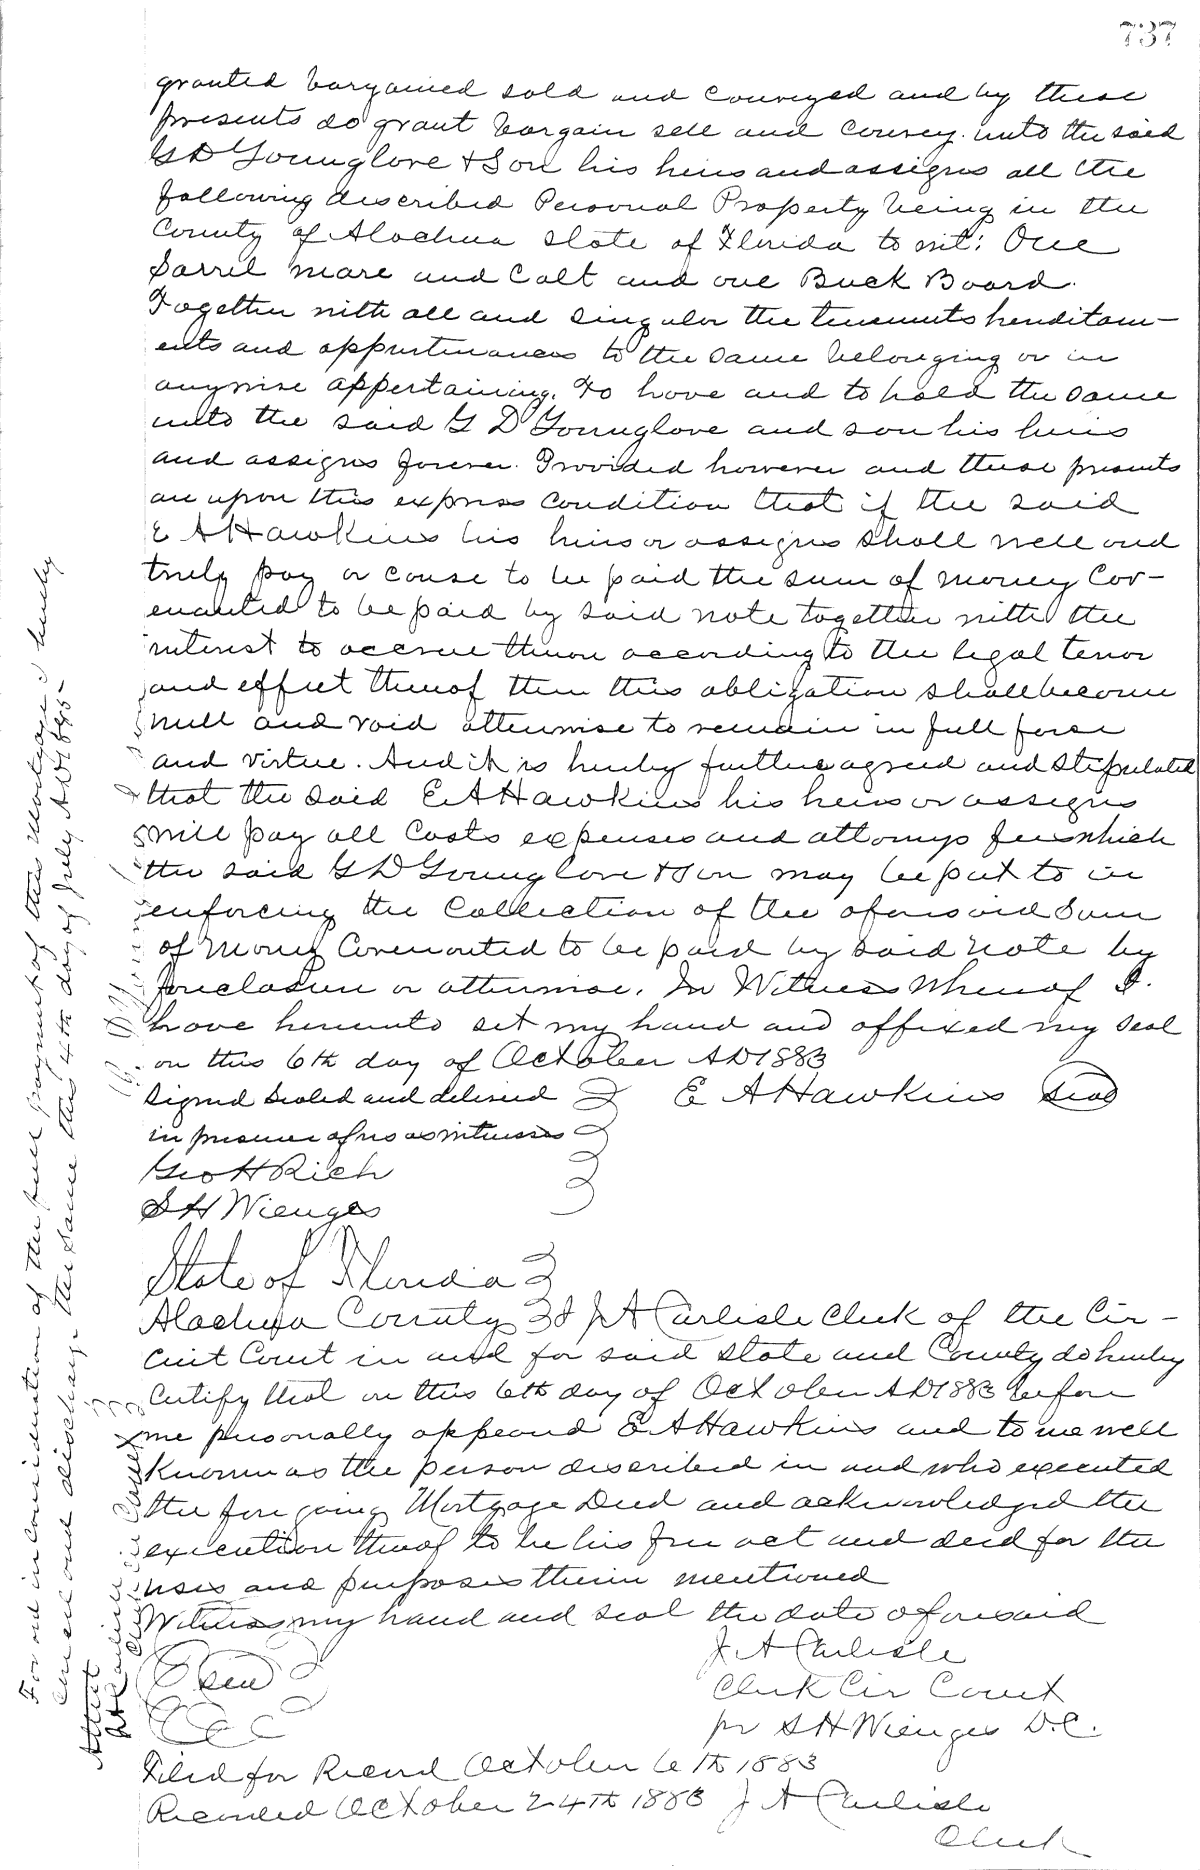 737
granted bargained sold and conveyed and by these
presents do grant bargain sell and convey unto the said
G D Younglove & Son his heirs and assigns all the
following described Personal Property being in the
County of Alachua State of Florida to wit: One
Sarrel mare and Colt and one Buck Board.
Together with all and singular the tenements herditam-
ents and appurtenances to the same belonging or in
anywise appertaining. To have and to hold the same
unto the said G D Younglove and son his heirs
and assigns forever. Provided however and these presents
are upon this express condition that if the said
E A Hawkins his heirs or assigns shall well and
truly pay or cause to be paid the sum of money Cov-
enanted to be paid by said note together with the
interest to accrue theron according to the legal tenor
and effect thereof then this obligation shall become
null and void otherwise to remain in full force
and virtue. And it is hereby further agreed and stipulated
that the said E A Hawkins his heirs or assigns
will pay all Costs expenses and attorneys fees which
the said G D Younglove & Son may be put to in
enforcing the Collection of the aforesaid Sum
of Money Covenanted to be paid by said note by
foreclosure or otherwise. In Witness Whereof I.
have hereunto set my hand and affixed my seal
on this 6th day of October AD 1883
Signed Sealed and delivered E A Hawkins Seal
in presence of us as witnesses
Geo H Rich
S H Wienges
State of Florida
Alachua County I J A Carlisle Clerk of the Cir-
cuit Court in and for said State and County do hereby
Certify that on this 6th day of October AD 1883 before
me personally appeared E A Hawkins and to me well
Known as the person described in and who executed
the fore going Mortgage Deed and acknowledged the
execution thereof to be his free act and deed for the
uses and purposes therin mentioned
Witness my hand and seal the date aforesaid
J A Carlisle
Seal
Clerk Cir Court
pr S H Wienges D.C.
Filed for Record October 6th 1883
Recorded October 24th 1883 J A Carlisle
Clerk
For and in Consideration of the full payment of this Mortgage I hereby
Cancel and discharge the Same this 4th day of July AD 1885-
Attest